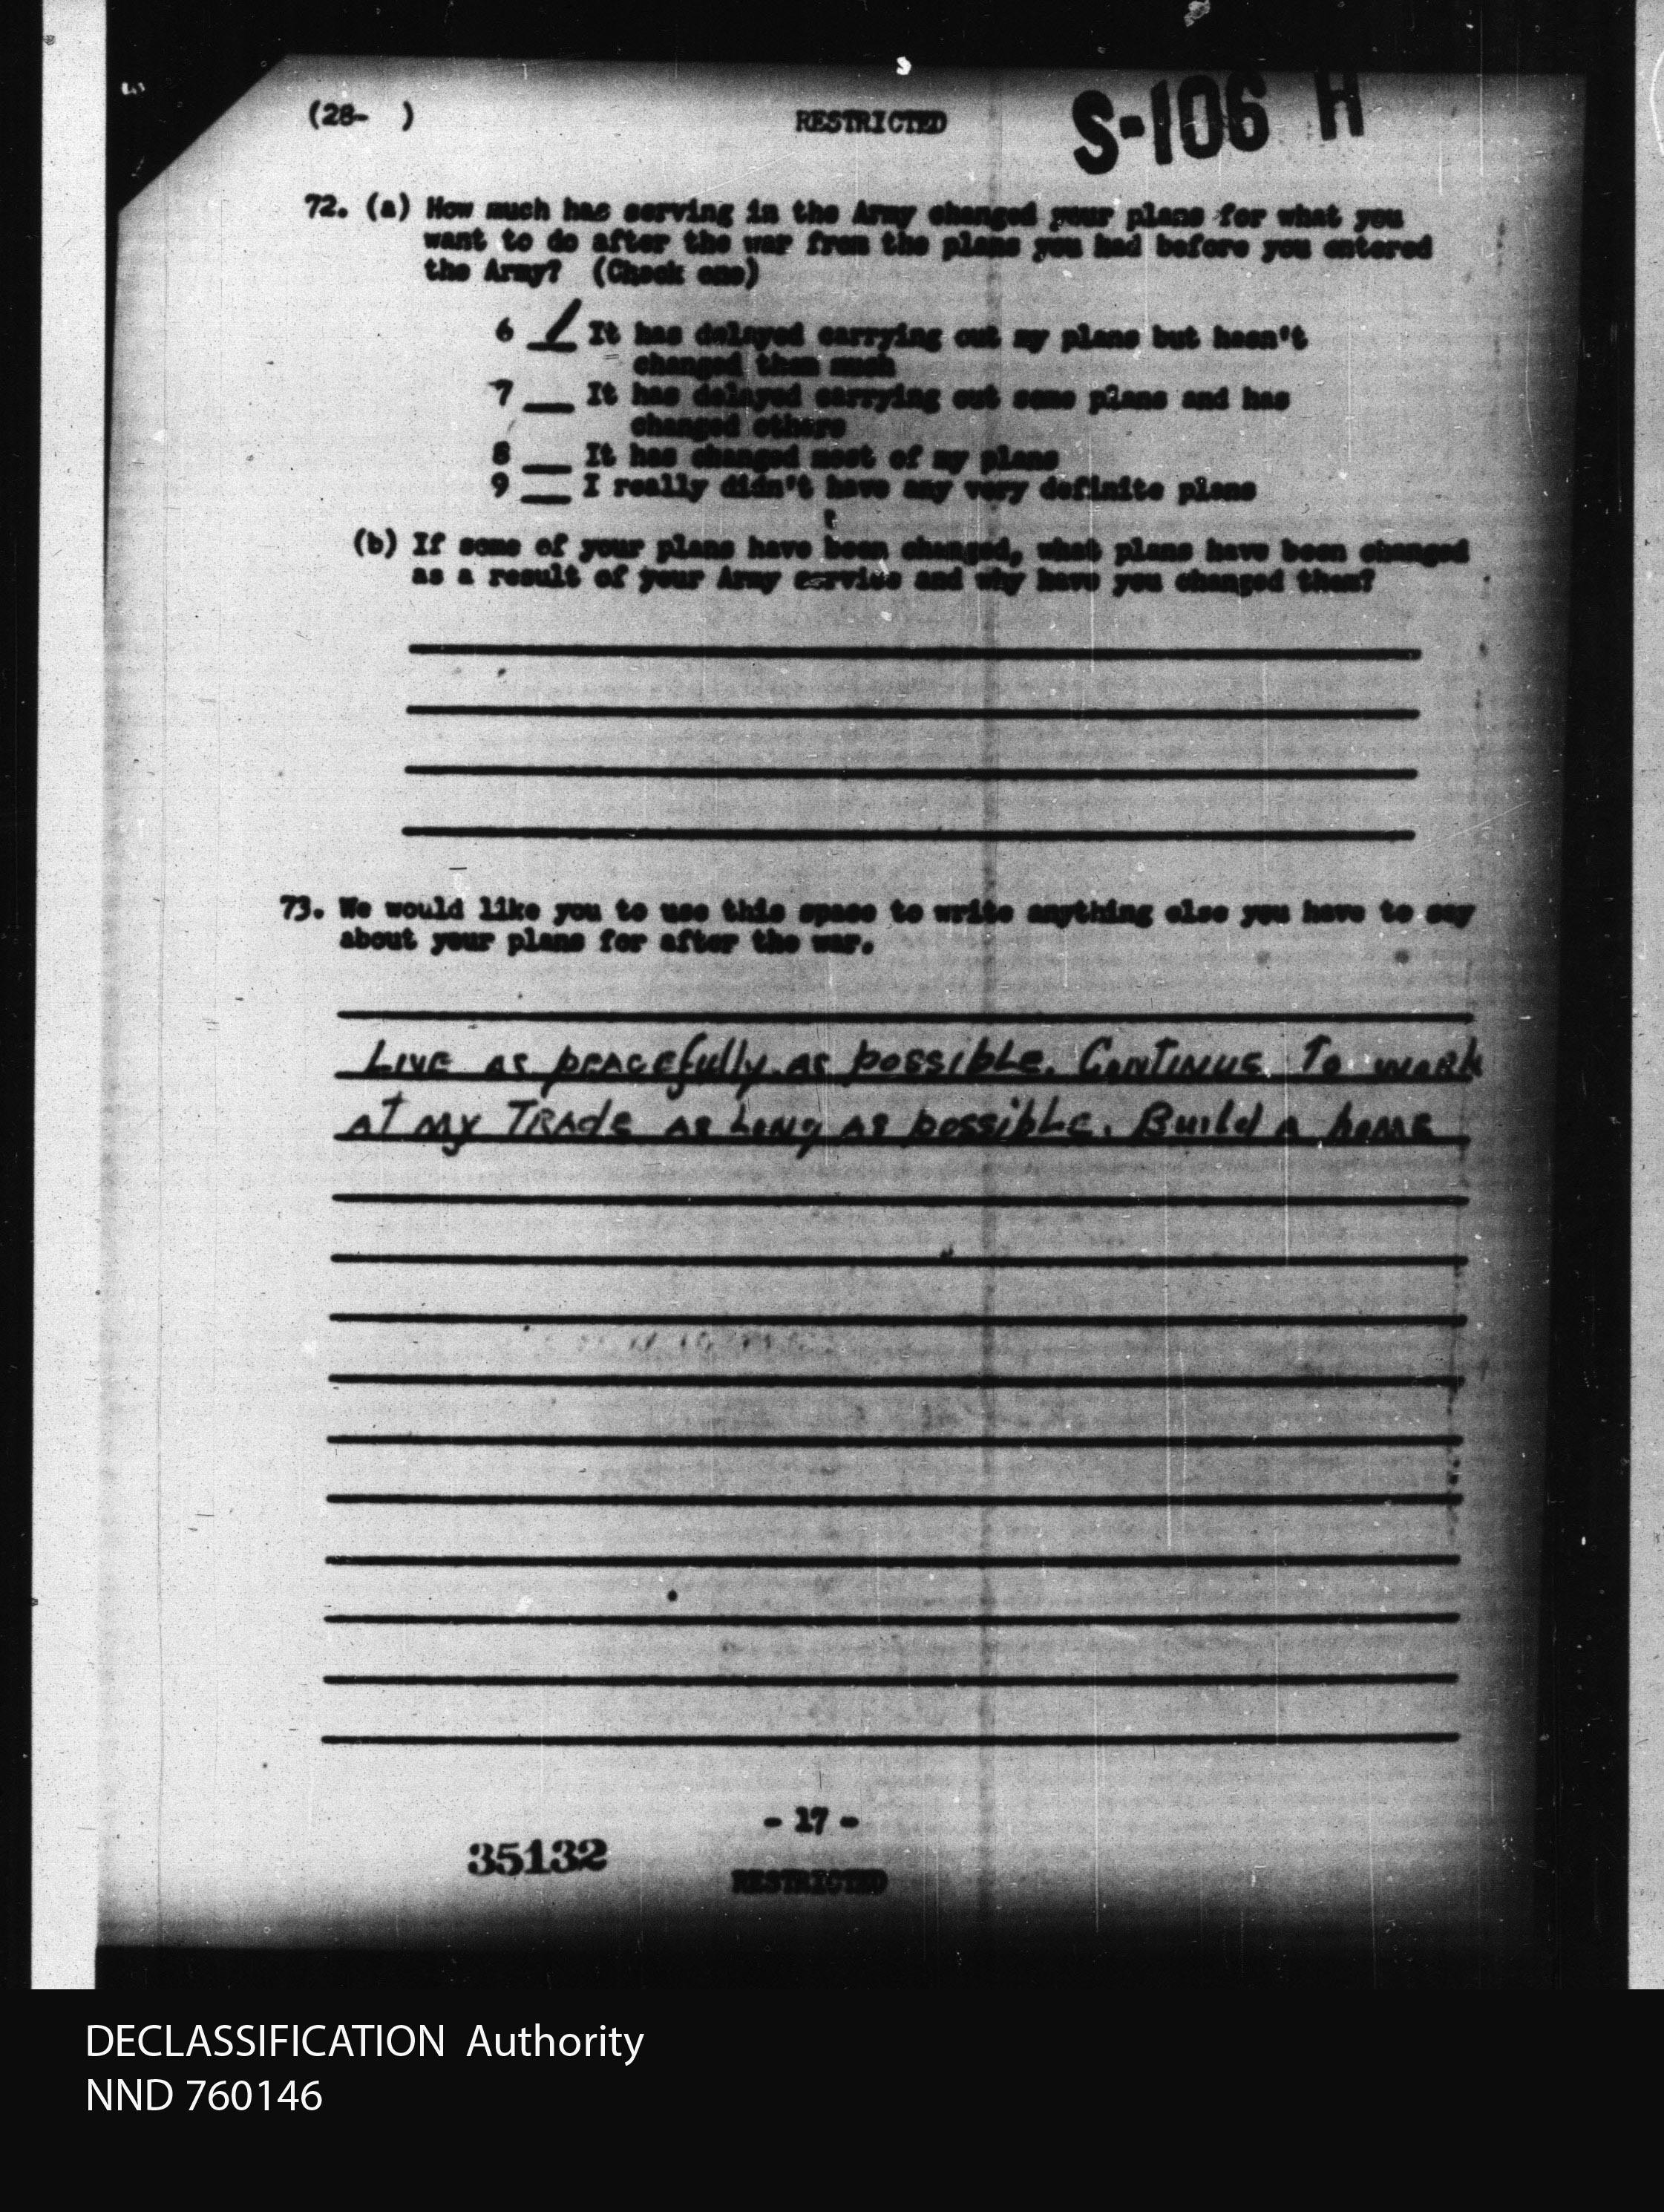 (28- )
RESTRICTED
S-106 H
72. (a) How much has serving in the Army changed your plans for what you
want to do after the war from the plans you had before you entered
the Army? (Check one)
6 / It has delayed carrying out my plans but hasn't
changed them much
7 __ It has delayed carrying out some plans and has
changed others
8 __ It has changed most of my plans
9 __ I really didn't have any very definite plans
(b) If some of your plans have been changed, what plans have been changed
as a result of your Army service and why have you changed them?
73. We would like you to use this space to write anything else you have to say
about your plans for after the war.
Live as peacefully as possible. Continue to work
at my Trade as long as possible. Build a home
- 17 -
35132
RESTRICTED
DECLASSIFICATION Authority
NND 760146